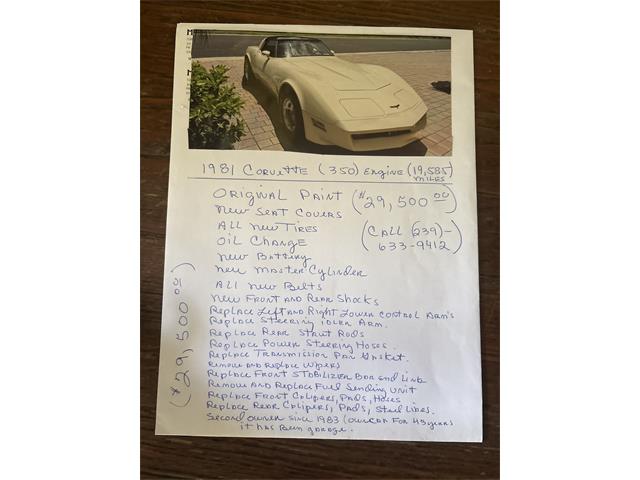 1981 Corvette (350) Engine (19,585) miles
Original Paint ($29,500 00)
New Seat Covers
All New Tires (Call (239)-
Oil Change 633-9412)
New Battery
New Master Cylinder
All New Belts
New Front and Rear Shocks
Replace Left and Right Lower Control Arm's
Replace Steering Idler Arm.
Replace Rear Strut Rods
Replace Power Steering Hoses.
Replace Transmission Pan Gasket.
Remove and Replace Wipers
Replace Front Stabilizer Bar and Link
Remove and Replace Fuel Sending Unit
Replace Front Calipers, Pads, Hoses
Replace Rear Calipers, Pads, Steel Lines.
Second owner since 1983 (our car for 43 years
it has been garage.
($29,500 00)